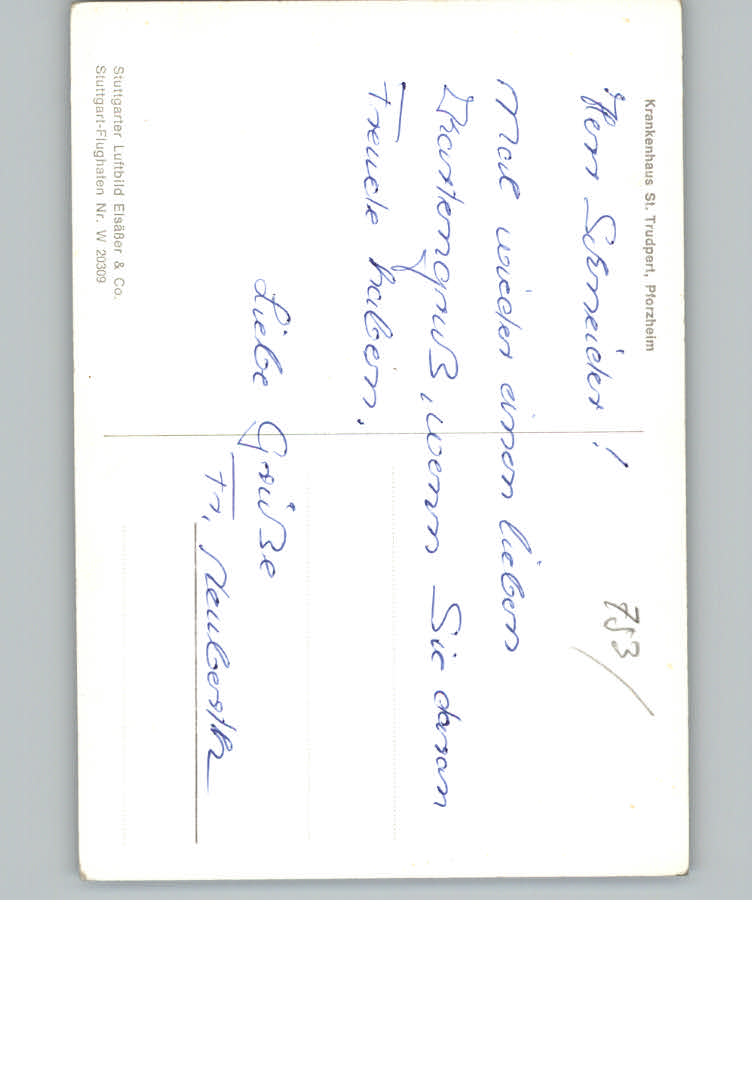 Krankenhaus St. Trudpert, Pforzheim
Herr Schneider!
753/
Mal wieder einen lieben
Kartengruß, wenn Sie daran
Freude haben.
Liebe Grüße
Fr.
Stuttgarter Luftbild Elsäßer & Co.
Stuttgart-Flughafen Nr. W 20309